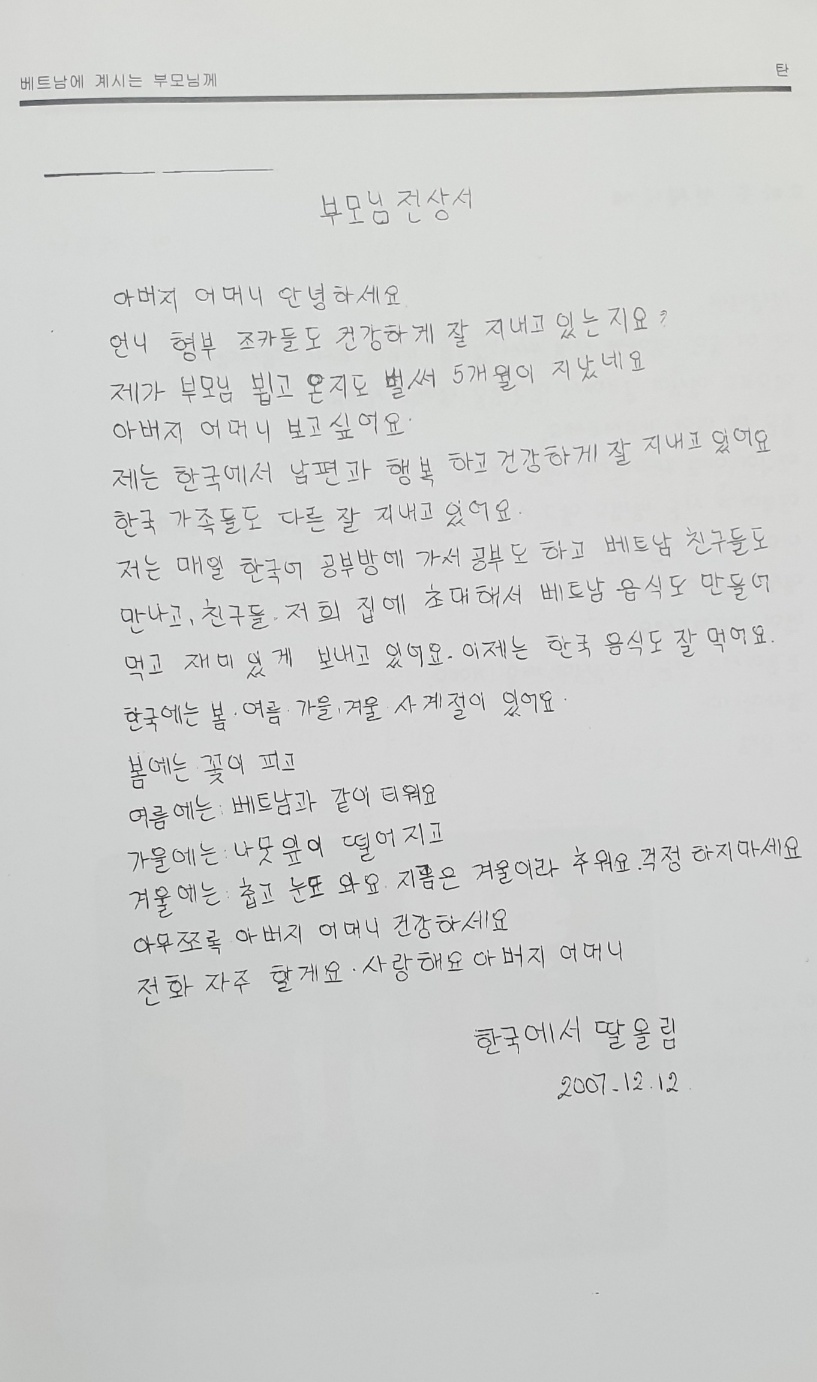 베트남에 계시는 부모님께
탄
부모님 전상서
아버지 어머니 안녕하세요
언니 형부 조카들도 건강하게 잘 지내고 있는지요?
제가 부모님 뵙고 온지도 벌써 5개월이 지났네요
아버지 어머니 보고싶어요.
제는 한국에서 남편과 행복 하고 건강하게 잘 지내고 있어요
한국 가족들도 다른 잘 지내고 있어요.
저는 매일 한국어 공부방에 가서 공부도 하고 베트남 친구들도
만나고, 친구들. 저희 집에 초대해서 베트남 음식도 만들어
먹고 재미 있게 보내고 있어요. 이제는 한국 음식도 잘 먹어요.
한국에는 봄. 여름. 가을, 겨울 사계절이 있어요.
봄에는 꽃이 피고
여름에는: 베트남과 같이 더워요
가을에는: 나뭇잎이 떨어지고
겨울에는: 춥고 눈또 와요. 지금은 겨울이라 추워요. 걱정 하지마세요
아무쪼록 아버지 어머니 건강하세요
전화 자주 할게요. 사랑해요 아버지 어머니
한국에서 딸 올림
2007-12.12